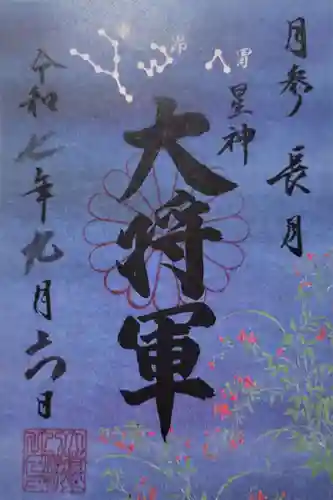 月参 長月
胃
星神
大将軍
令和七年九月六日